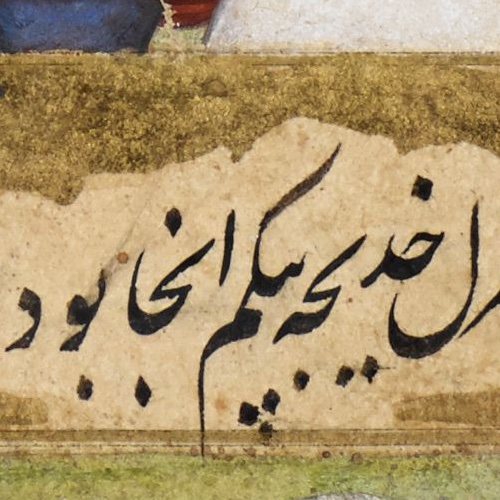 خدیجه بیگم انجا بود